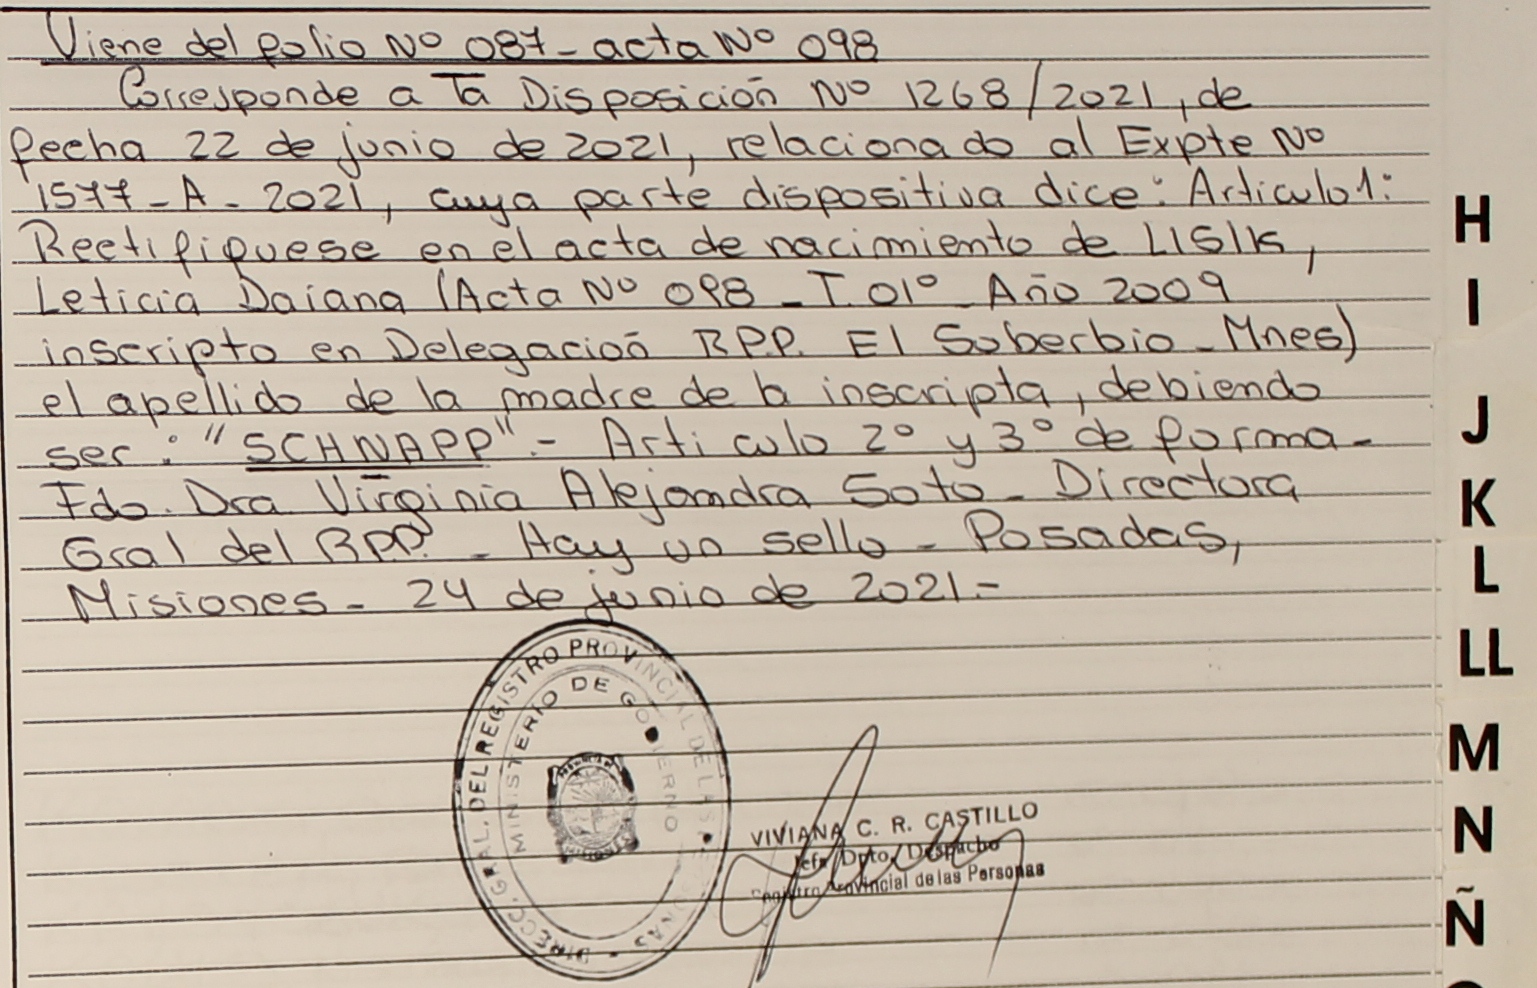 Viene del folio Nº 087 - acta Nº 098
Corresponde a la Disposición Nº 1268/2021, de
fecha 22 de junio de 2021, relacionado al Expte Nº
1577 - A - 2021, cuya parte dispositiva dice: Articulo 1:
Rectifiquese en el acta de nacimiento de LISIK,
Leticia Daiana (Acta Nº 098 - T. 01º - Año 2009
inscripto en Delegación RPP. El Soberbio - Mnes)
el apellido de la madre de la inscripta, debiendo
ser: "SCHNAPP".- Articulo 2º y 3º de forma -
Fdo. Dra Virginia Alejandra Soto - Directora
Gral del RPP. - Hay un sello - Posadas,
Misiones - 24 de junio de 2021.-
DIRECC. GRAL. DEL REGISTRO PROVINCIAL DE LAS PERSONAS
MINISTERIO DE GOBIERNO
VIVIANA C. R. CASTILLO
Jefa Dpto. Despacho
Registro Provincial de las Personas
H
I
J
K
L
LL
M
N
Ñ